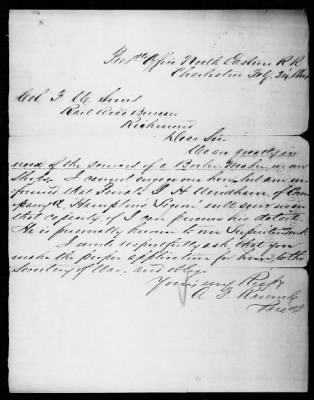 Presdts Office North Eastern R.R.
Charleston Feby. 24
Col F W Sims
Rail Road Bureau
Richmond
Dear Sir
We are greatly in
need of the services of a Boiler Maker in our
Shops. I cannot engage one, but am in-
formed that Private J H Windham, of Com-
pany Hampton's Legion will serve us in
that capacity if I can procure his detail.
He is personally known to our Superintendent.
I must respectfully ask that you
make the proper application for him to the
Secretary of War, and oblige
Yours very Respy
A F Ravenel
Presdt